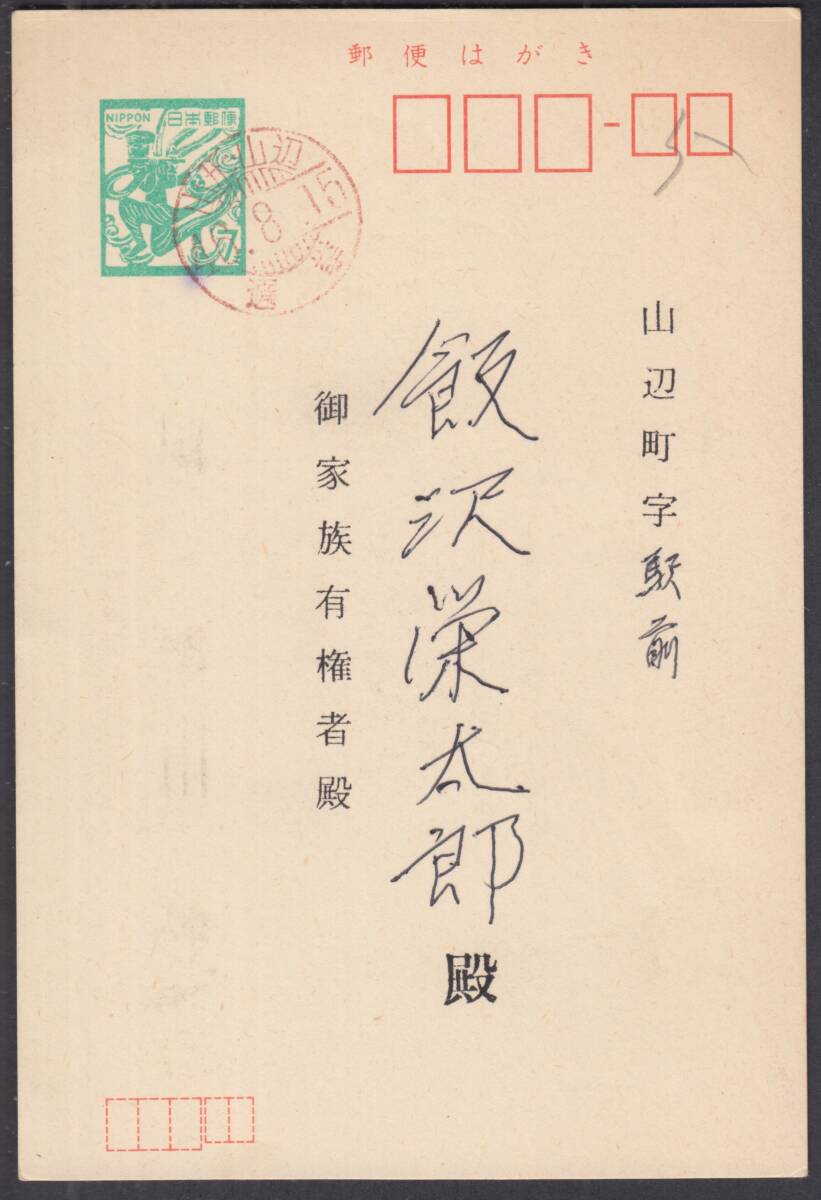 郵便はがき
NIPPON 日本郵便
7
山辺
8.15
選
山辺町字駅前
飯沢栄太郎殿
御家族有権者殿